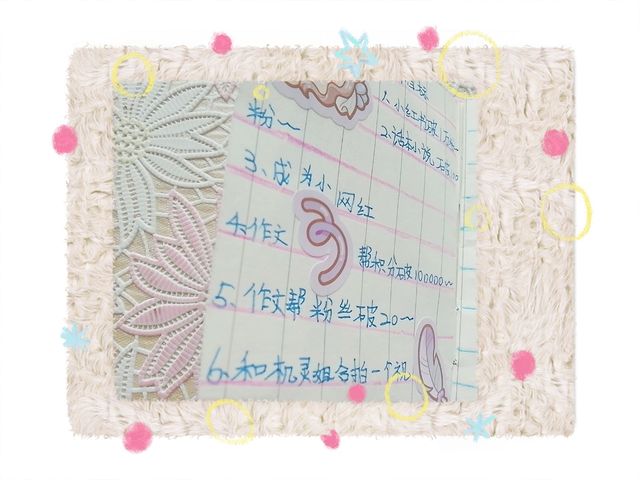 1、小红书破1万
2、话本小说,破10
粉~~
3、成为小网红
4、作文 帮积分破100000~
5、作文帮粉丝破20~
6、和机灵姐合拍一个视